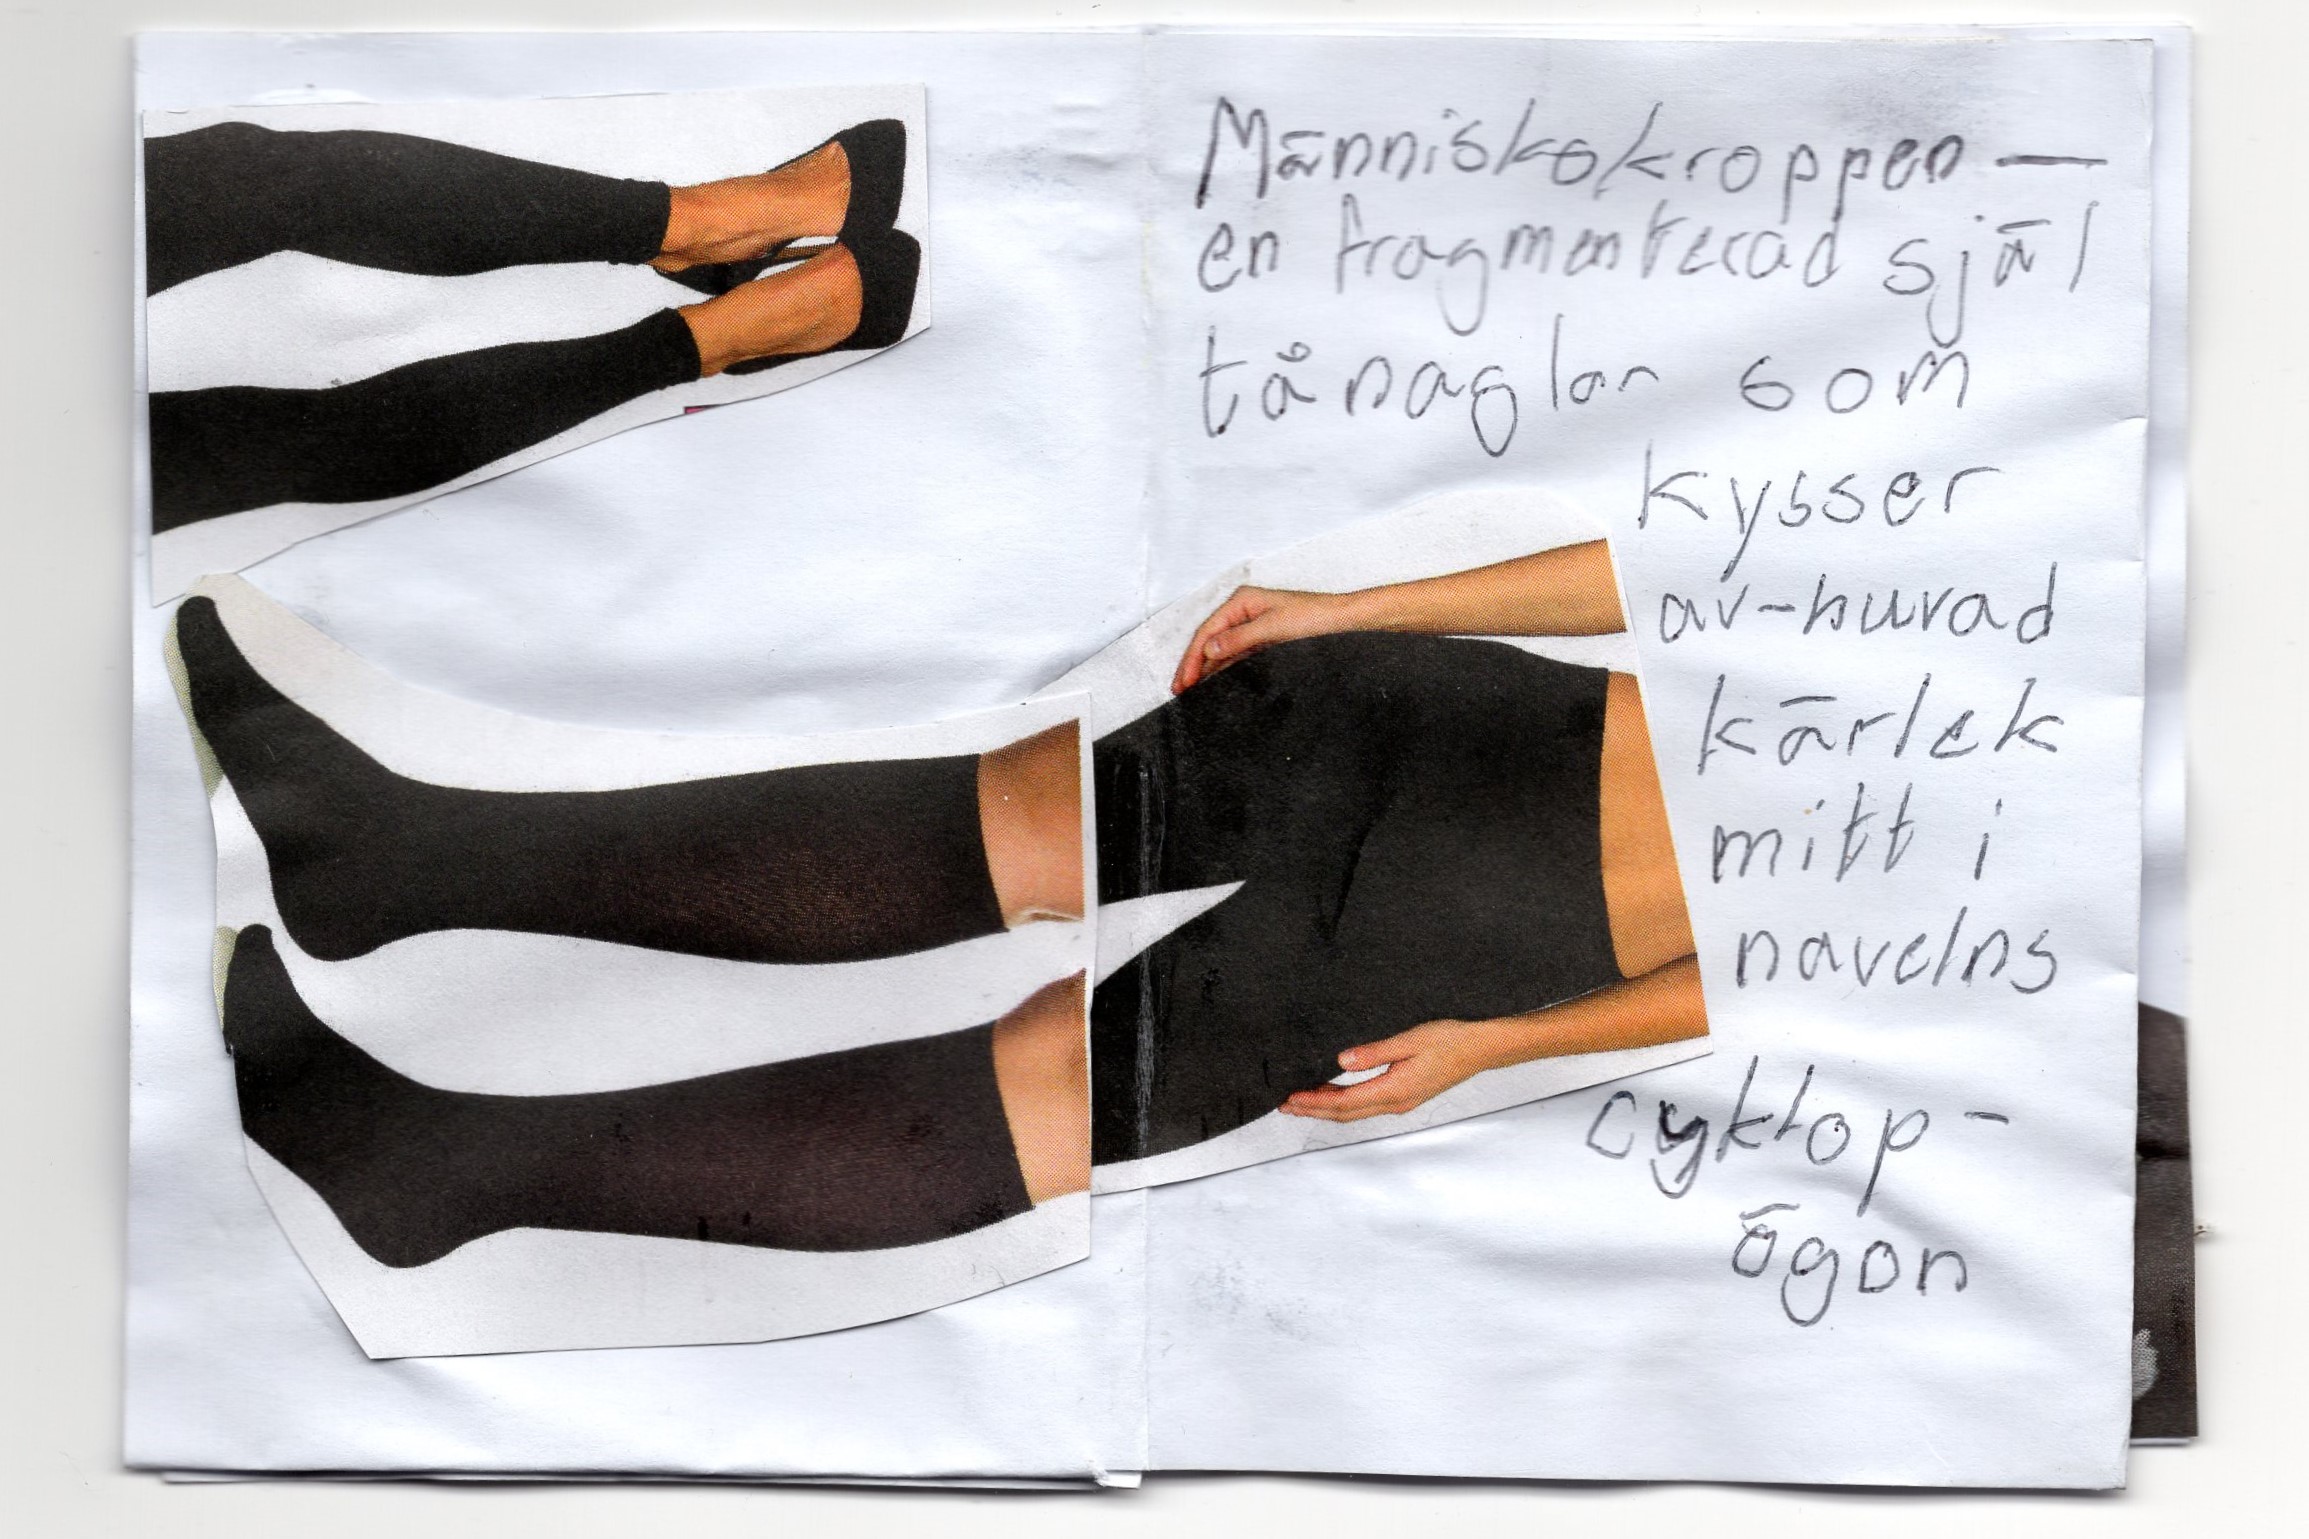 Människokroppen —
en fragmenterad själ
tånaglar som
kysser
av-huvad
kärlek
mitt i
navelns
cyklop-
ögon